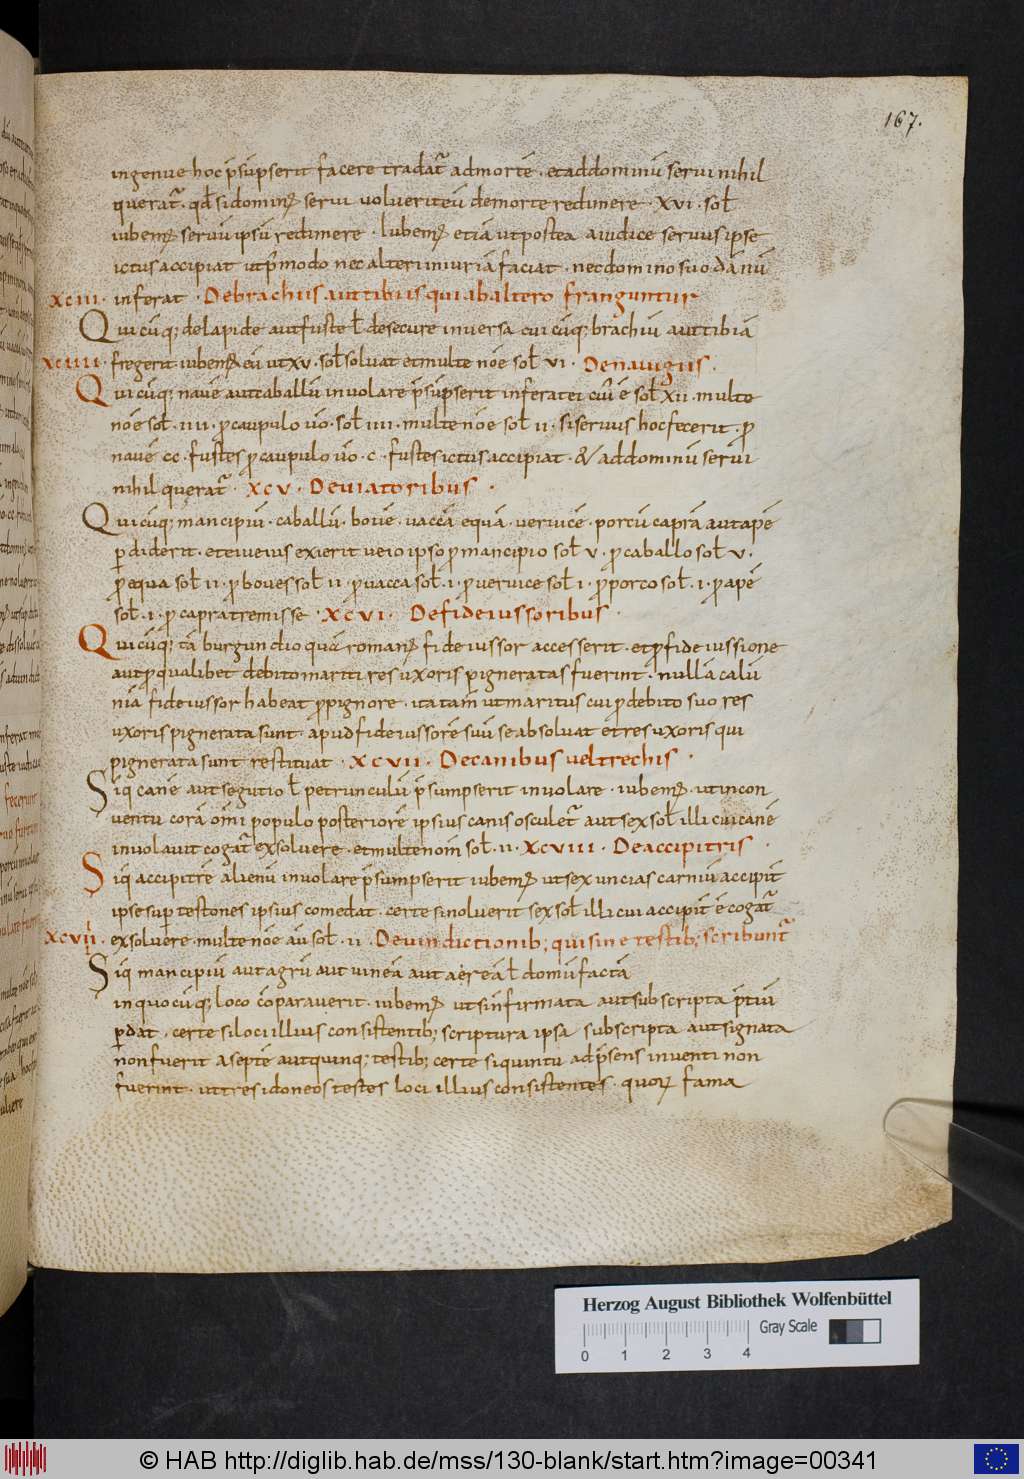 167.
ingenue hoc p̄sūpserit facere tradat᷑ admortē · etaddominū servi nihil
querat᷑ · qd̄ sidominꝰ servi volveriteū demorte redimere · xvi · sol̄
iubemꝰ servū ipsū redimere · Iubemꝰ etiā utpostea aiudice servus ipse
ictus accipiat utp̄modo nec alteri iniuriā faciat · nec domino suo dānū
xciii · inferat · Debrachiis aut tibiis qui abaltero franguntur
Quicūq; delapide autfuste l̄ desecure inversa cui cūq; brachiū aut tibiā
xciiii · fregerit iubemꝰ eū ut xv · sol̄ solvat et multe nōe sol̄ vi · Denavigiis ·
Quicūq; navē autcaballū involare p̄sūpserit inferat ei cuiꝰ ē sol̄ xii · multe
nōe sol̄ · iiii · ꝓ caupulo v̄o · sol̄ iiii · multe nōe sol̄ ii · siservus hoc fecerit · ꝓ
navē cc · fustes ꝓ caupulo v̄o · c · fustes ictus accipiat · & addominū servi
nihil querat᷑ · xcv · Deviatoribus ·
Quicūq; mancipiū · caballū · bovē · vaccā equā · vervicē · porcū caprā aut apē
ꝑdiderit · et eiveius exierit veio ipso ꝓ mancipio sol̄ v · ꝓ caballo sol̄ v ·
ꝓ equa sol̄ ii · ꝓ boves sol̄ ii · ꝓ vacca sol̄ · i · ꝓ vervice sol̄ i · ꝓ porco sol̄ · i · ꝓ apē
sol̄ · i · ꝓ capra tremisse · xcvi · Defideiussoribus ·
Quicūq; tā burgundio quā romanꝰ fideiussor accesserit · et ꝓ fideiussione
aut ꝓ qualibet debito mariti res uxoris pigneratas fuerint · nullā calū
niā fideiussor habeat ꝓ pignore · ita tam̄ ut maritus cui ꝓ debito suo res
uxoris pignerata sunt · apud fideiussorē suū se absolvat et res uxoris qui
pignerata sunt restituat · xcvii · Decanibus veltrechis ·
Siq̄ canē aut segutio l̄ petrunculū p̄sumpserit involare · iubemꝰ · ut incon
ventu corā om̄i populo posteriorē ipsius canis osculet᷑ aut sex sol̄ illi cui canē
involavit cogat᷑ exsolvere · et multe nom̄ sol̄ · ii · xcviii · Deaccipitris ·
Siq̄ accipitrē alienū involare p̄sumpserit iubemꝰ ut sex uncias carniū accipit᷑
ipse suꝑ testones ipsius comedat · certe si noluerit sex sol̄ illi cui accipit᷑ ē cogat᷑
xcviiii · exsolvere · multe nōe aū sol̄ · ii · Devindictionib; qui sine testib; scribunt᷑
Siq̄ mancipiū aut agrū aut vineā aut aereā l̄ domū factā
in quo cūq; loco cōparaverit · iubemꝰ ut si n̄ firmata aut subscripta p̄tiū
ꝑdat · certe si loci illius consistentib; scriptura ipsa subscripta aut signata
non fuerit a septē aut quinq; testib; certe si quintū ad p̄sens inventi non
fuerint · ut tres idoneos testes loci illius consistentes · quorꝝ fama
Herzog August Bibliothek Wolfenbüttel
Gray Scale
0 1 2 3 4
© HAB http://diglib.hab.de/mss/130-blank/start.htm?image=00341